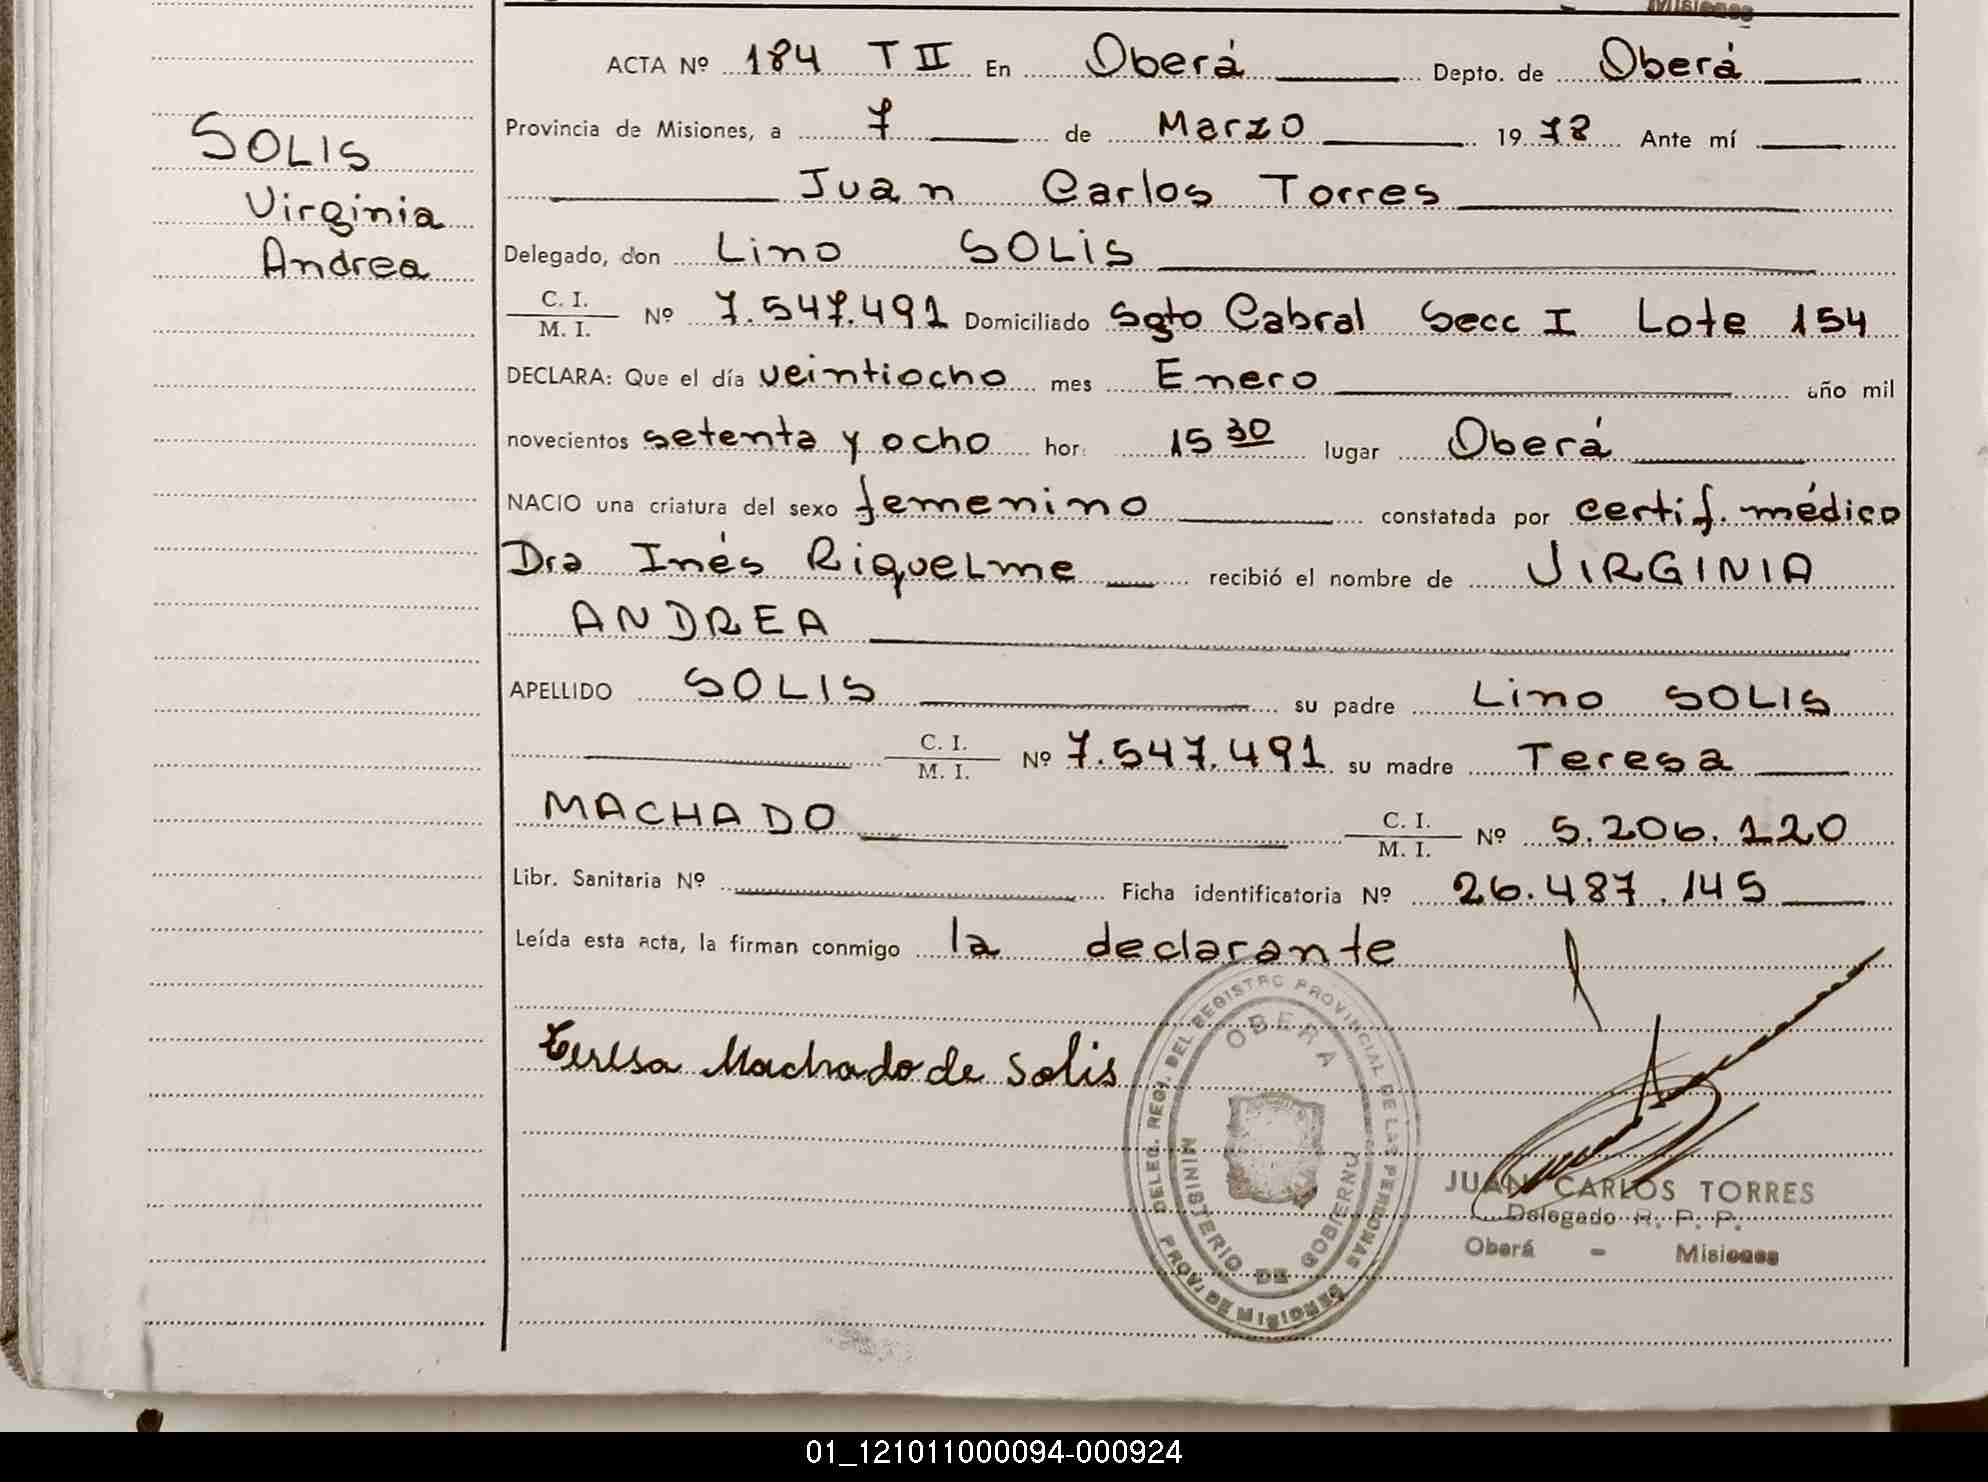 Misiones
SOLIS
Virginia
Andrea
ACTA Nº 184 T II En Oberá Depto. de Oberá
Provincia de Misiones, a 7 de Marzo 1978 Ante mí
Juan Carlos Torres
Delegado, don Lino SOLIS
C. I.
M. I. Nº 7.547.491 Domiciliado Sgto Cabral Secc I Lote 154
DECLARA: Que el día veintiocho mes Enero año mil
novecientos setenta y ocho hor: 15 30 lugar Oberá
NACIO una criatura del sexo femenino constatada por certif. médico
Dra Inés Riquelme recibió el nombre de VIRGINIA
ANDREA
APELLIDO SOLIS su padre Lino SOLIS
C. I.
M. I. Nº 7.547.491 su madre Teresa
MACHADO C. I.
M. I. Nº 5.206.120
Libr. Sanitaria Nº Ficha identificatoria Nº 26.487.145
Leída esta acta, la firman conmigo la declarante
Teresa Machado de Solis
DELEG. REGN. DEL REGISTRO PROVINCIAL DE LAS PERSONAS
OBERA
MINISTERIO DE GOBIERNO
PROV. DE MISIONES
JUAN CARLOS TORRES
Delegado R. P. P.
Oberá - Misiones
01_121011000094-000924